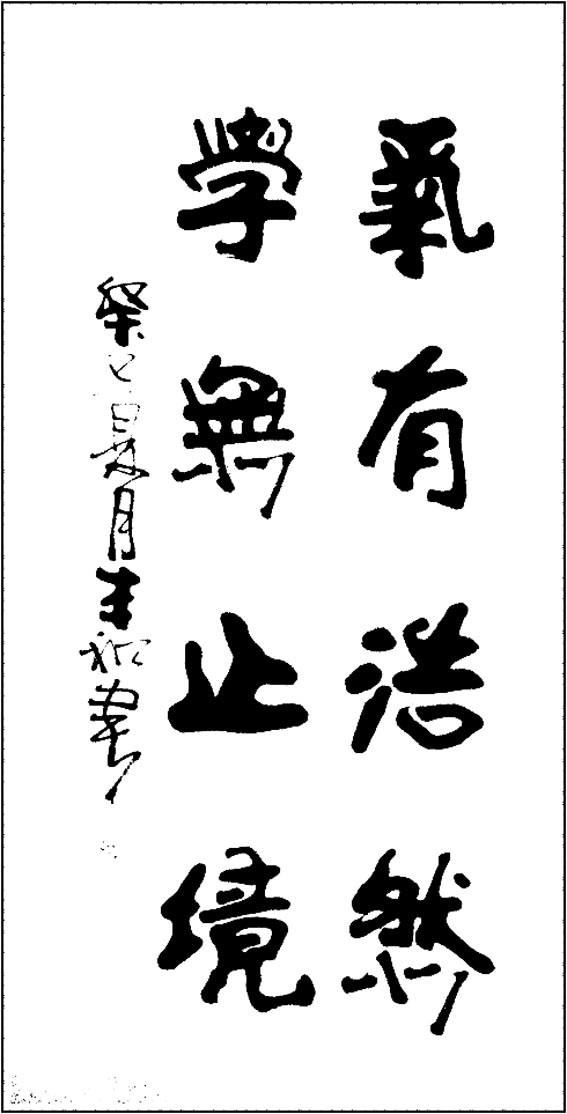 氣有浩然
學無止境
癸巳夏月李和書